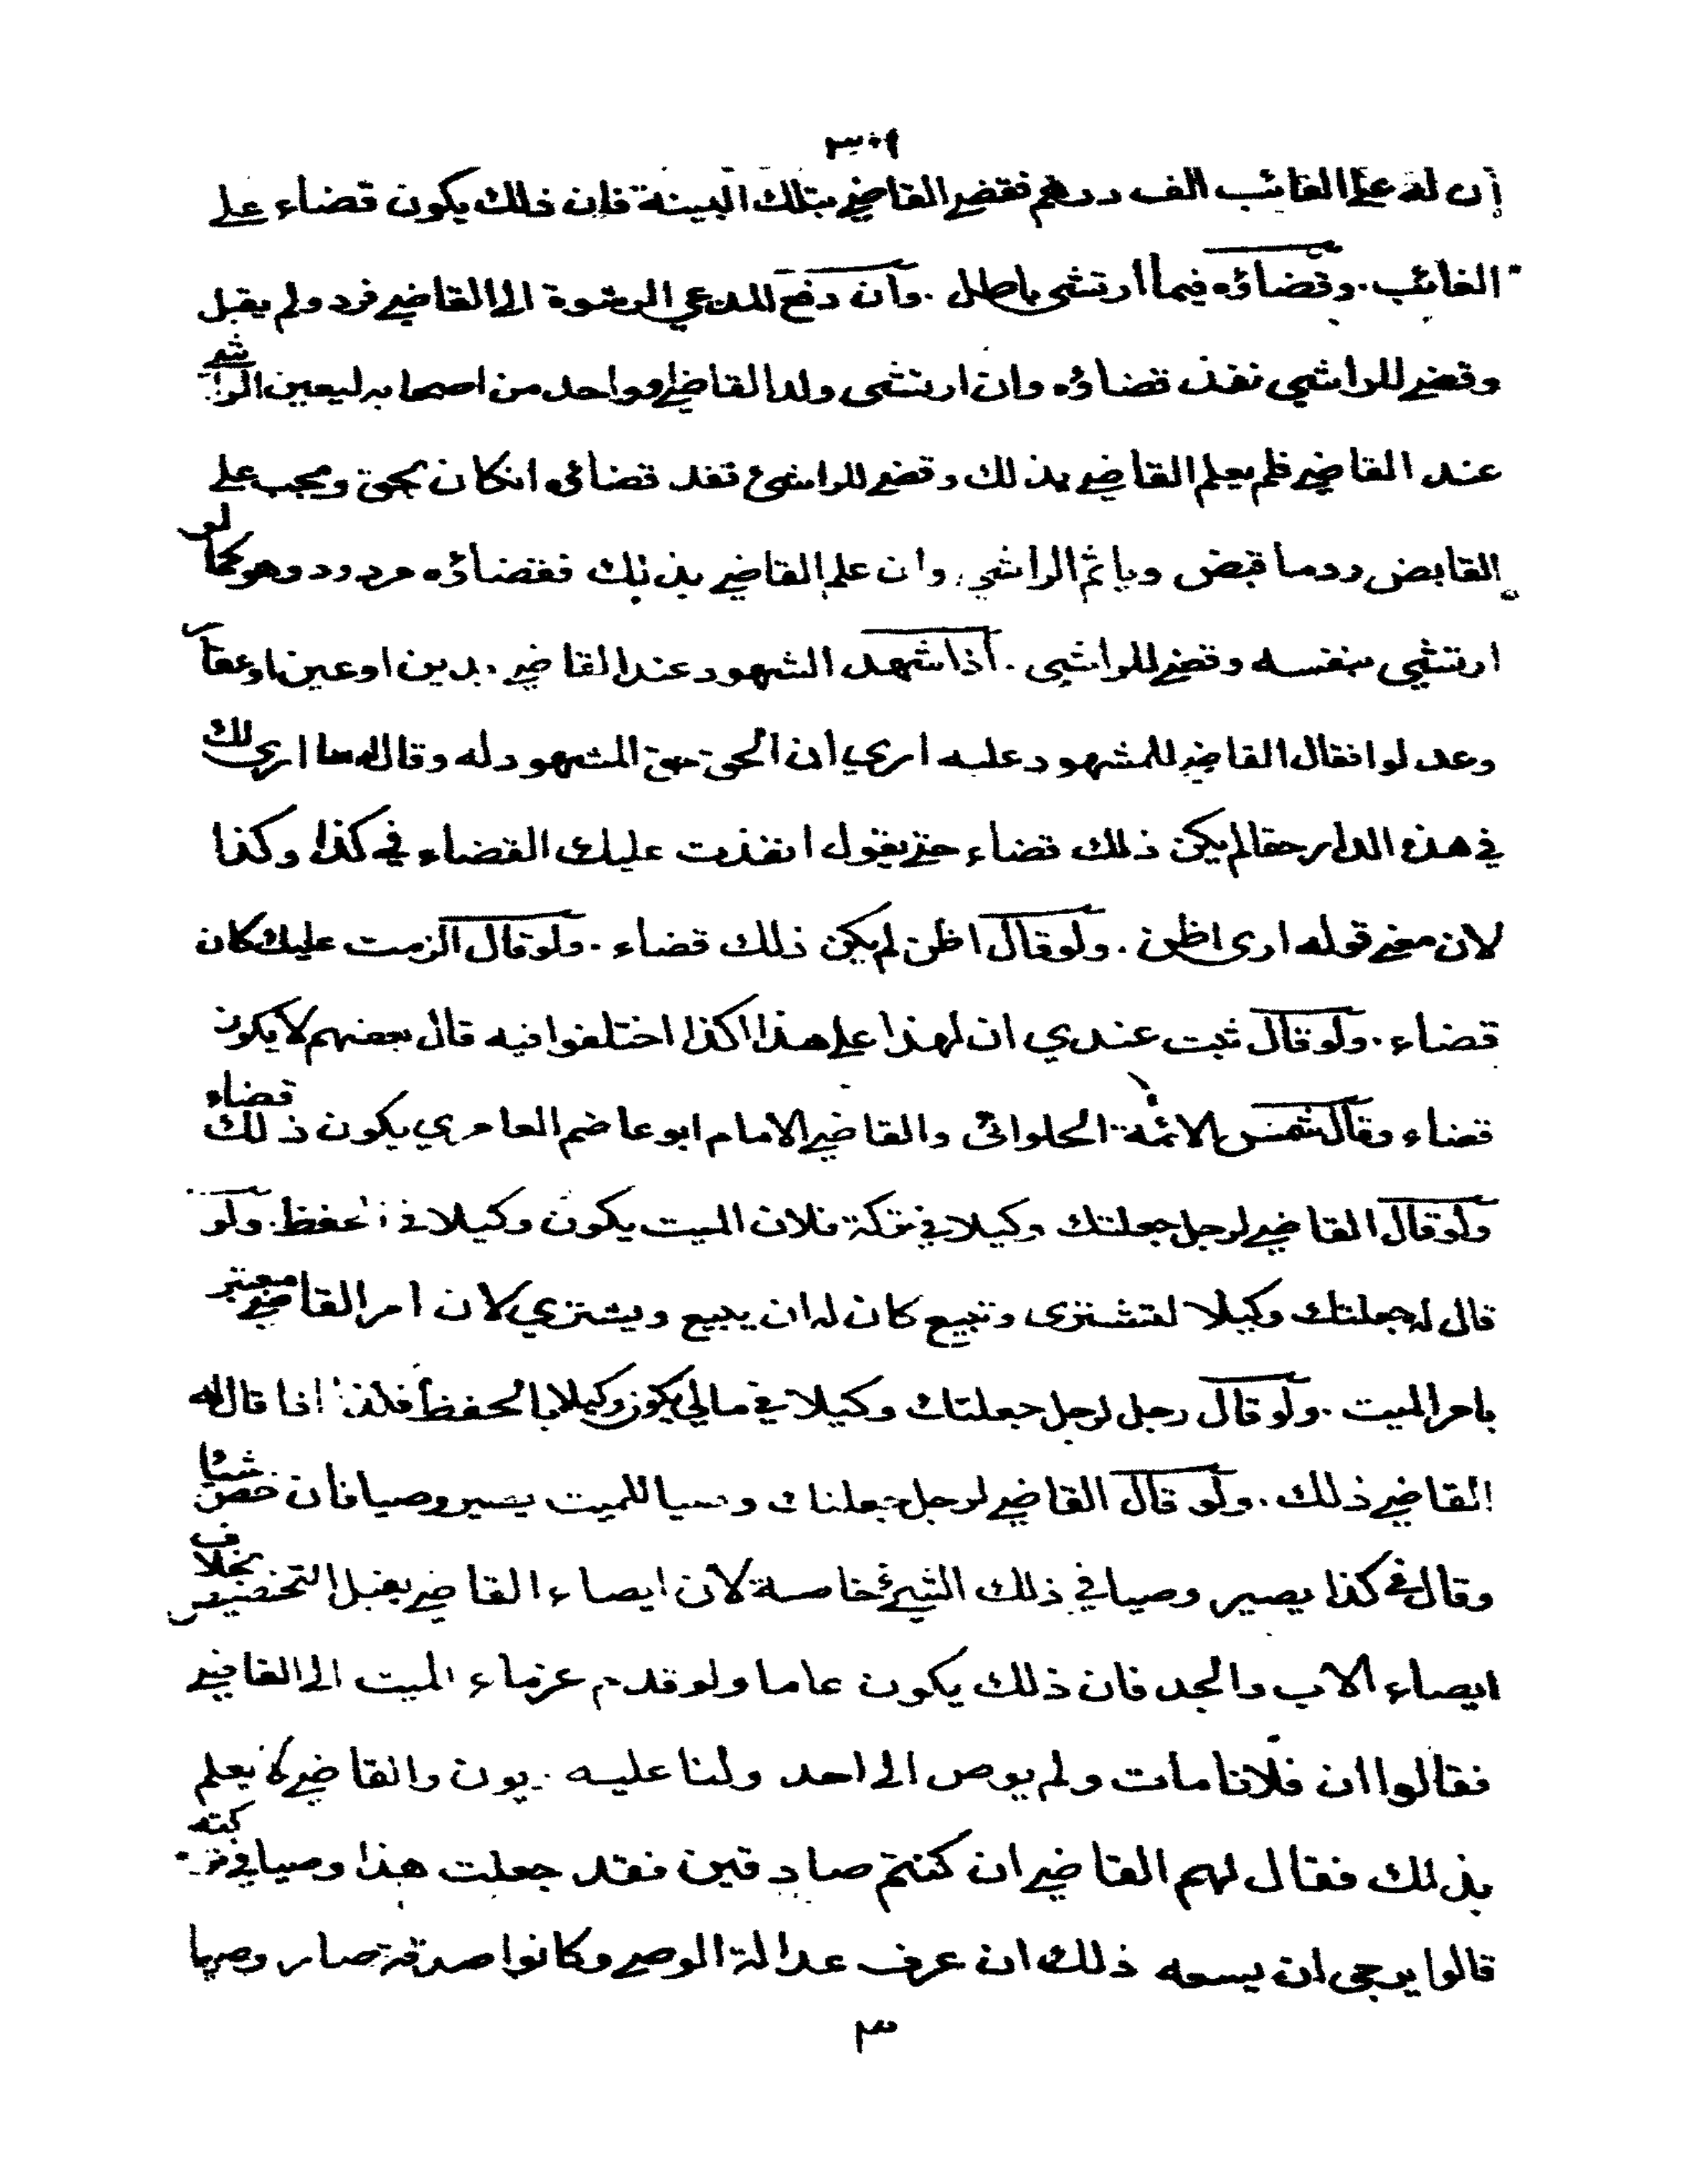 ٣٠٩
ان له على الغائب الف درهم فقضى القاضي بتلك البينة فان ذلك يكون قضاء على
الغائب. وقضاؤه فيما ارتشى باطل. وان دفع المدعي الرشوة الى القاضي فرد ولم يقبل
وقضى للراشي نفذ قضاؤه وان ارتشى ولد القاضي او واحد من اصحابه ليعين الراشي
عند القاضي فلم يعلم القاضي بذلك وقضى للراشي نفذ قضائه انكان بحق ويجب على
القابض رد ما قبض وياثم الراشي. وان علم القاضي بذلك فقضاؤه مردود وهو كما لو
ارتشي بنفسه وقضى للراشي. اذا شهد الشهود عند القاضي بدين او عين او عقار
وعدلوا فقال القاضي للمشهود عليه اري ان الحق حق المشهود له وقال له ما اري لك
في هذه الدار حقا لم يكن ذلك قضاء حتى يقول انفذت عليك القضاء في كذا وكذا
لان معنى قوله ارى اظن. ولو قال اظن لم يكن ذلك قضاء. ولو قال الزمت عليك كان
قضاء. ولو قال ثبت عندي ان لهذا على هذا كذا اختلفوا فيه قال بعضهم لا يكون
قضاء وقال شمس الائمة الحلوائى والقاضي الامام ابو عاضم العامري يكون ذلك قضاء
ولو قال القاضي لرجل جعلتك وكيلا في تركة فلان الميت يكون وكيلا في الحفظ. ولو
قال له جعلتك وكيلا لتشتري وتبيع كان له ان يبيع ويشتري لان امر القاضي معتبر
بامر الميت. ولو قال رجل لرجل جعلتك وكيلا في مالي يكون وكيلا بالحفظ فكذا اذا قال له
القاضي ذلك. ولو قال القاضي لرجل جعلتك وصيا للميت يصير وصيا فان خص شيئا
وقال في كذا يصير وصيا في ذلك الشيئ خاصة لان ايصاء القاضي يقبل التخصيص بخلاف
ايصاء الاب والجد فان ذلك يكون عاما ولو قدم غرماء الميت الى القاضي
فقالوا ان فلانا مات ولم يوص الى احد ولنا عليه ديون والقاضي لا يعلم
بذلك فقال لهم القاضي ان كنتم صادقين فقد جعلت هذا وصيا في تركته
قالوا يرجى ان يسعه ذلك ان عرف عدالة الوصي وكانوا صدقة صار وصيا
٣